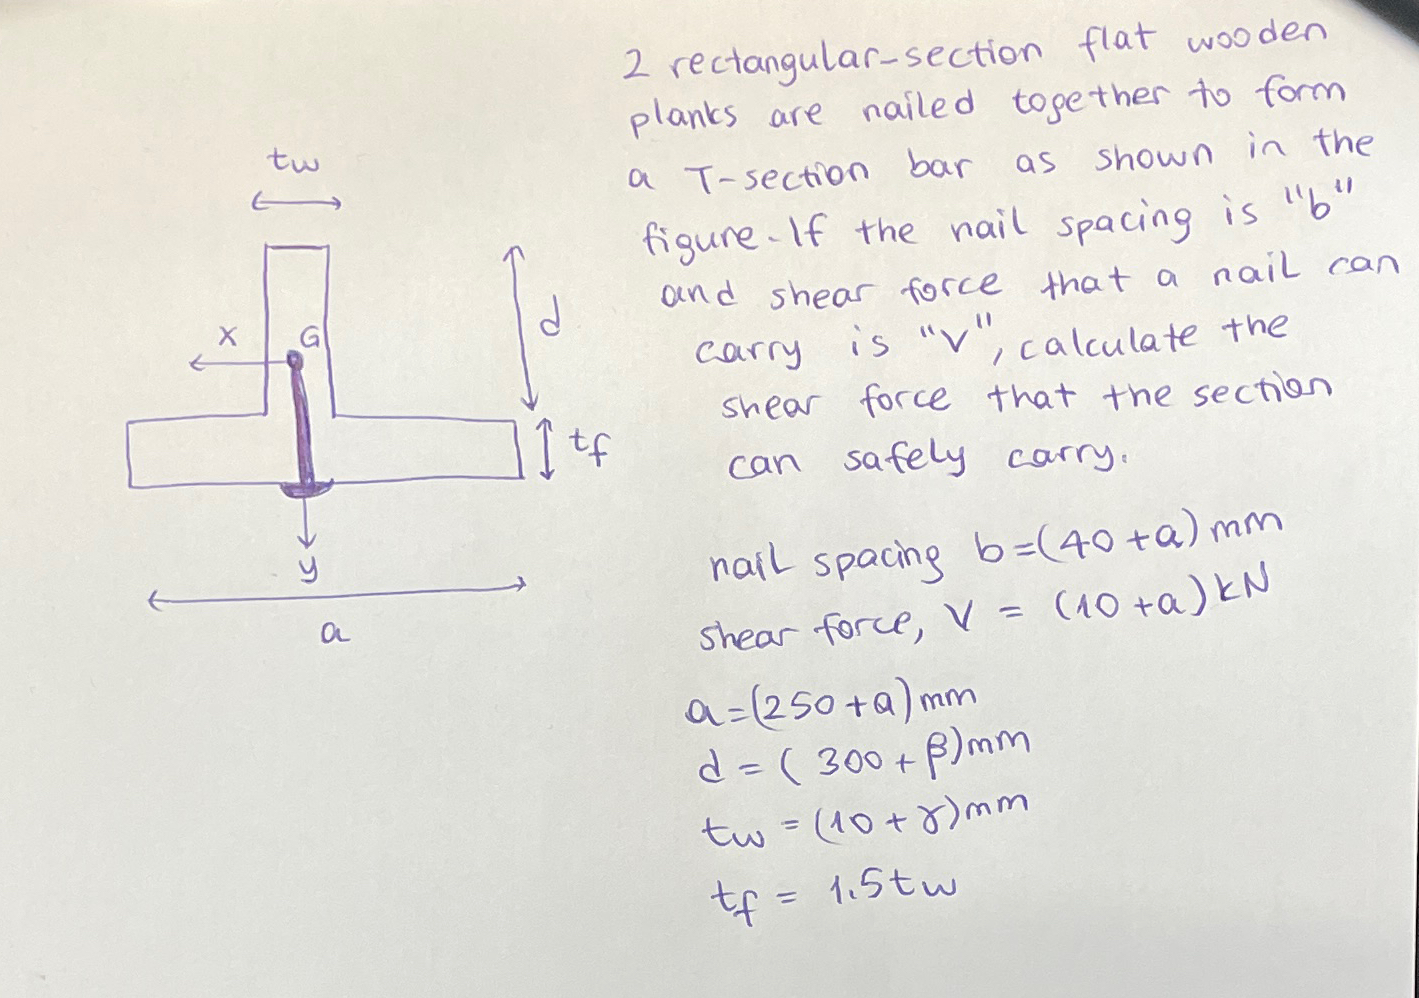 2 rectangular-section flat wooden
planks are nailed together to form
a T-section bar as shown in the
figure. If the nail spacing is "b"
and shear force that a nail can
carry is "V", calculate the
shear force that the section
can safely carry.
nail spacing b=(40+a)mm
shear force, V = (10+a)kN
a=(250+a)mm
d = (300+β)mm
tw = (10+γ)mm
tf = 1.5tw
tw
d
x
G
tf
y
a